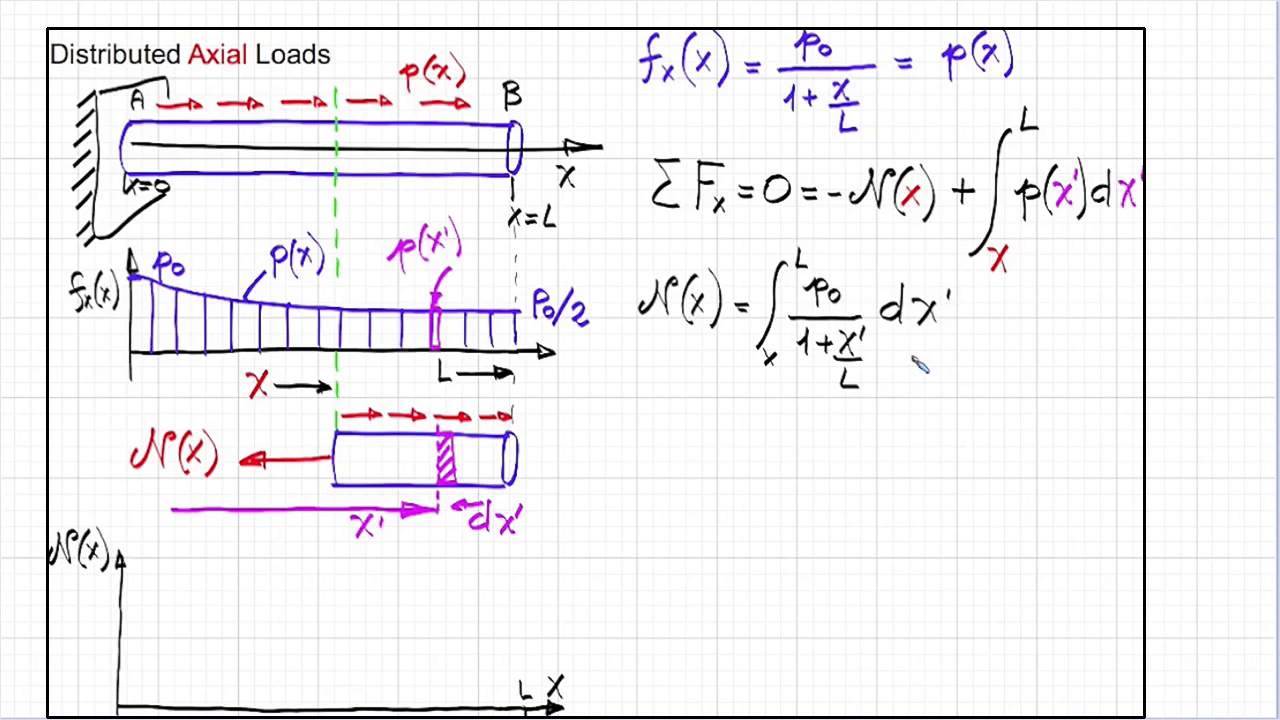 Distributed Axial Loads
p(x)
A
B
x=0
x
x=L
f_x(x)
p_0
p(x)
p(x')
P_0/2
x
L
N(x)
x'
dx'
N(x)
L
x
f_x(x) = p_0 / (1 + x/L) = p(x)
∑ F_x = 0 = - N(x) + ∫_x^L p(x') dx'
N(x) = ∫_x^L p_0 / (1 + x'/L) dx'